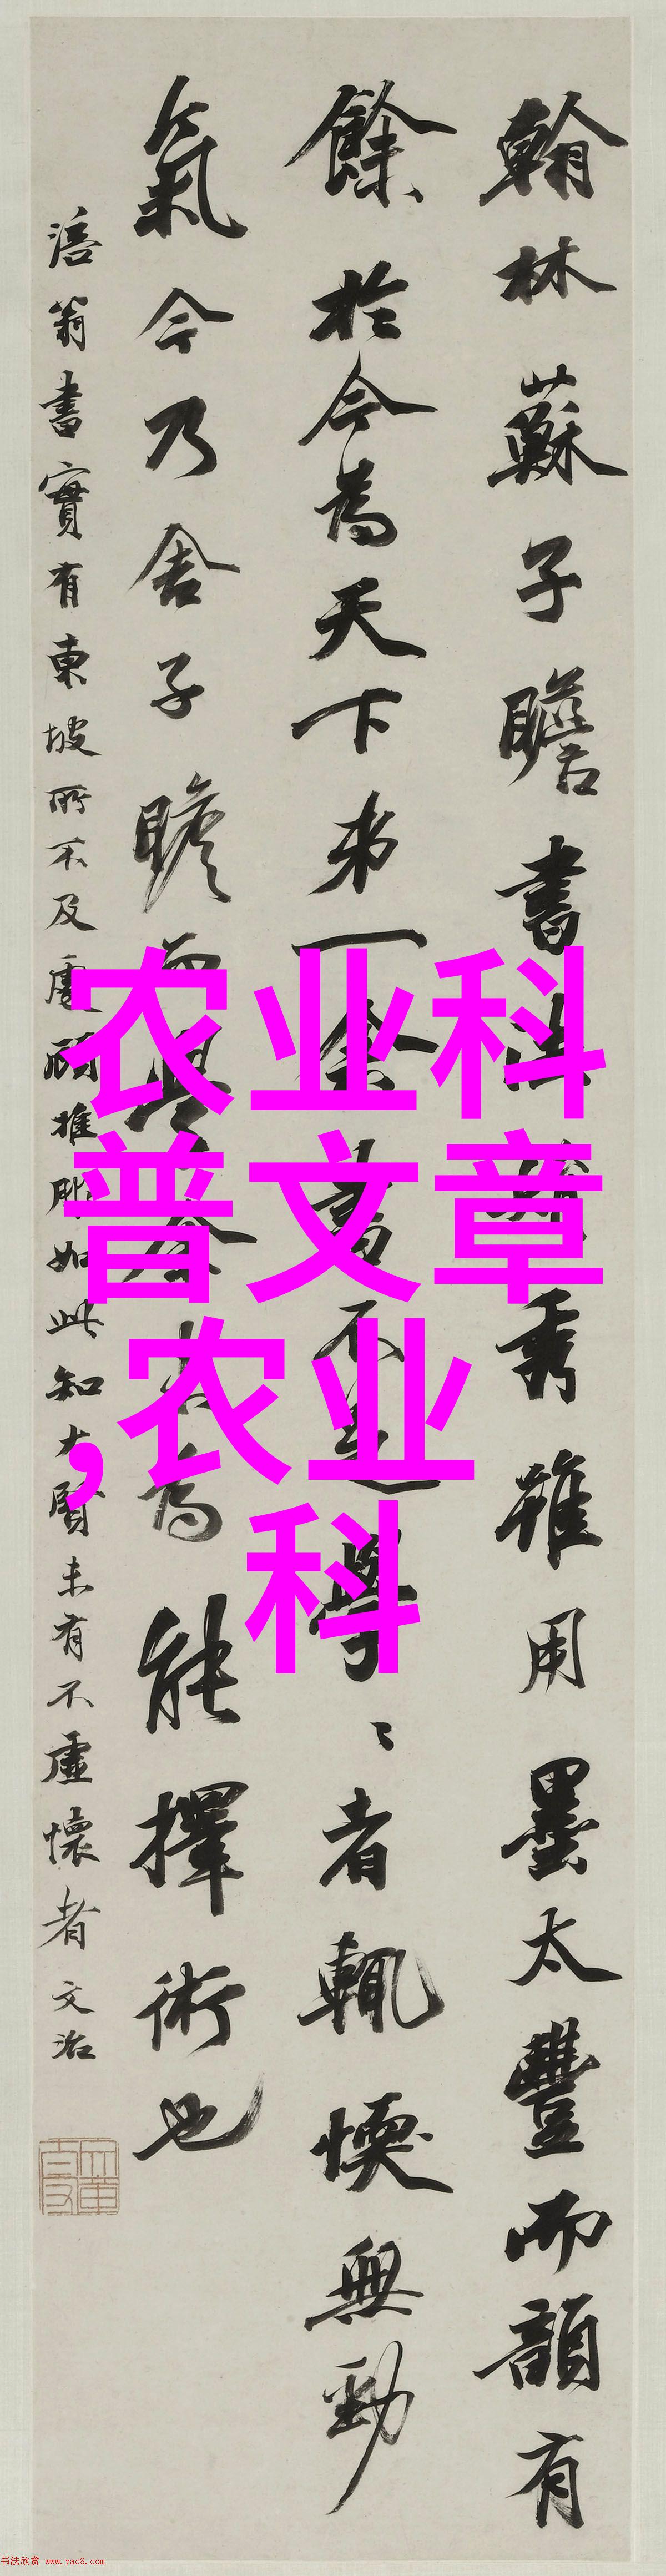 翰林蘇子瞻書法娟秀雖用墨太豐而韻有
餘於今為天下弟一余書不足學〻者輒愞無勁
氣今乃舍子瞻而學余未為能擇術也
涪翁書實有東坡所不及處顧推服如此知大賢未有不虛懷者文治
农业科
普文章
,农业
科
书法欣赏 www.yac8.com